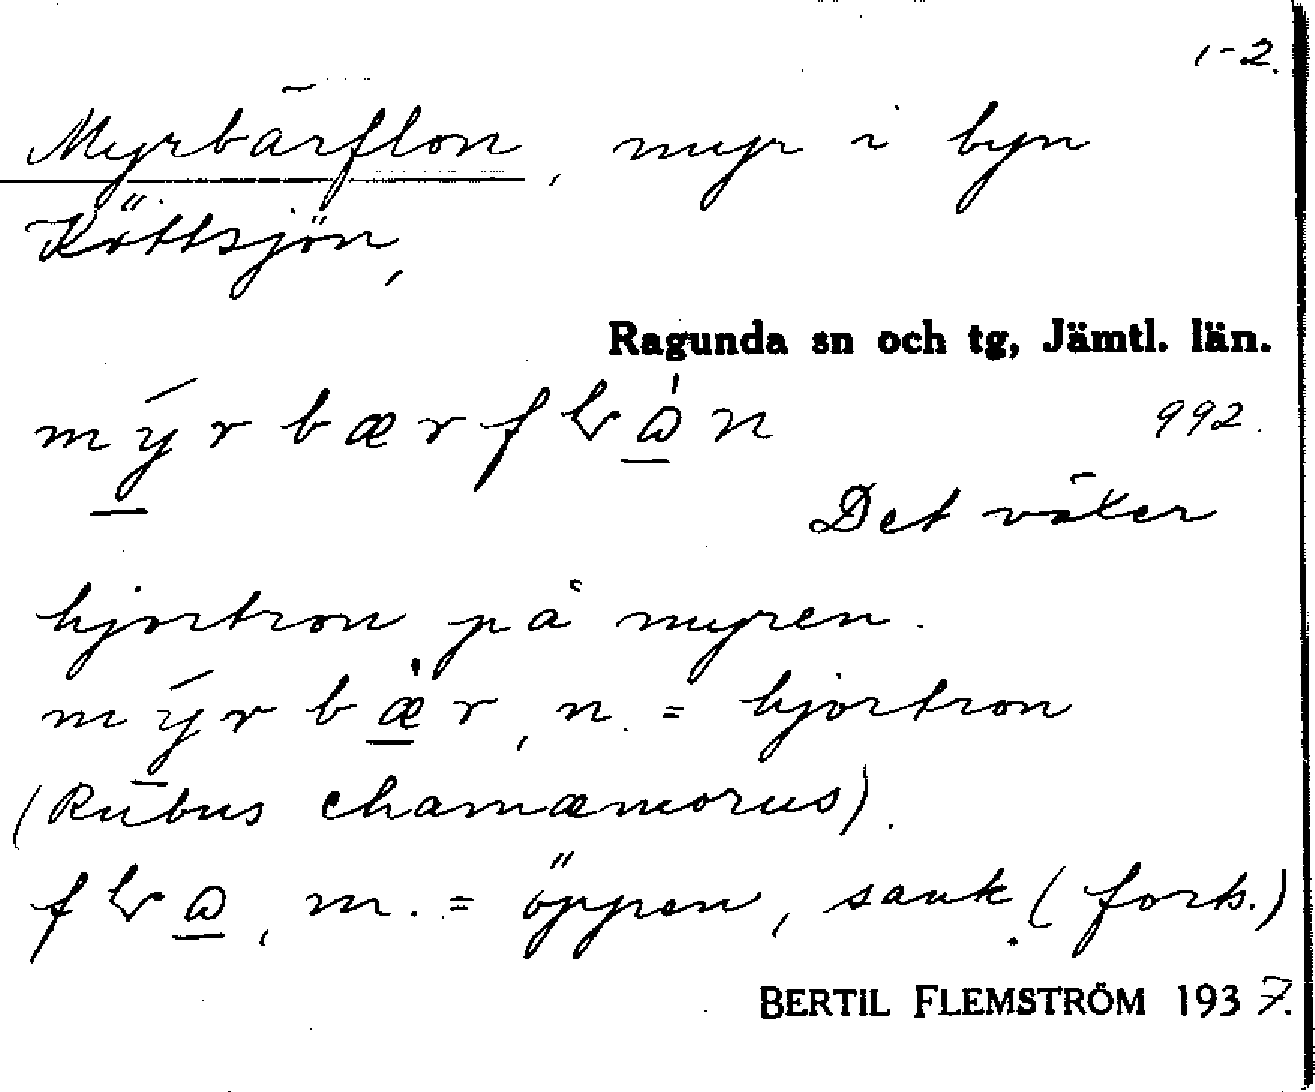 1-2.
Myrbärflon, myr i byn
Köttsjön,
Ragunda sn och tg, Jämtl. län.
992.
Det växer
hjortron på myren.
n. = hjortron
(Rubus chamæmorus).
m. = öppen, sank. (forts.)
BERTIL FLEMSTRÖM 1937.